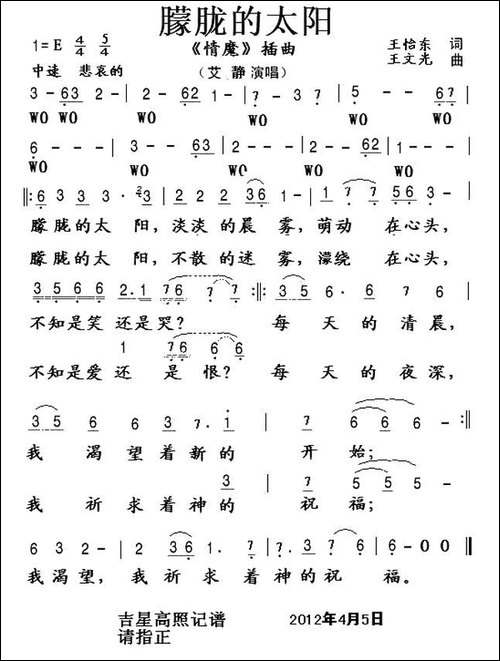 朦胧的太阳
1=E 4/4 5/4 《情魔》插曲 王怡东 词
中速 悲哀的 (艾静演唱) 王文光 曲
3 - 63 2 - | 2 - 62 1 - | 7 - 3 7 | 5 - - 67 |
WO WO WO WO WO
6 - - - | 3 - - 63 | 2 - - - | 2 - - 62 | 1 - - - |
WO WO WO WO WO
‖: 6 3 3 3 · 23 | 2 2 2 36 | 1 - 7 7 56 3 - |
朦胧的太 阳,淡淡 的晨 雾,萌动 在心头,
朦胧的太 阳,不散 的迷 雾,濛绕 在心头,
3 5 6 6 2·1 76 7 7 :‖: 35 6· 6 7 6 |
不知是笑 还是哭? 每 天 的 清晨,
1 76 6 6
不知是爱 还 是 恨? 每 天 的 夜深,
35 6 6 3 7· 1 | 7 6 6 6 - :‖
我 渴 望 着 新 的 开 始;
3 7 5 5 5
我 祈 求 着 神 的 祝 福;
6 3 2 - | 2 36 1· 7 | 7· 2 3 5 6 | 6 - 0 0 ‖
我 渴 望, 我 祈 求 着 神 的 祝 福。
吉星高照记谱 2012年4月5日
请指正